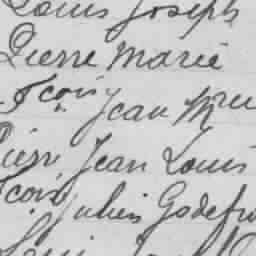 Louis Joseph
Pierre Marie
Fçois Jean Mie
Pierr Jean Louis
Fçois Julien Godefr